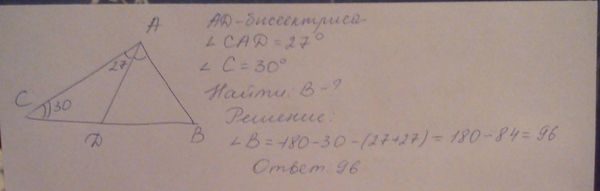 A
27
C
30
D
B
AD-биссектриса
∠ CAD = 27°
∠ C = 30°
Найти: B - ?
Решение:
∠ B = 180 - 30 - (27+27) = 180 - 84 = 96
Ответ 96